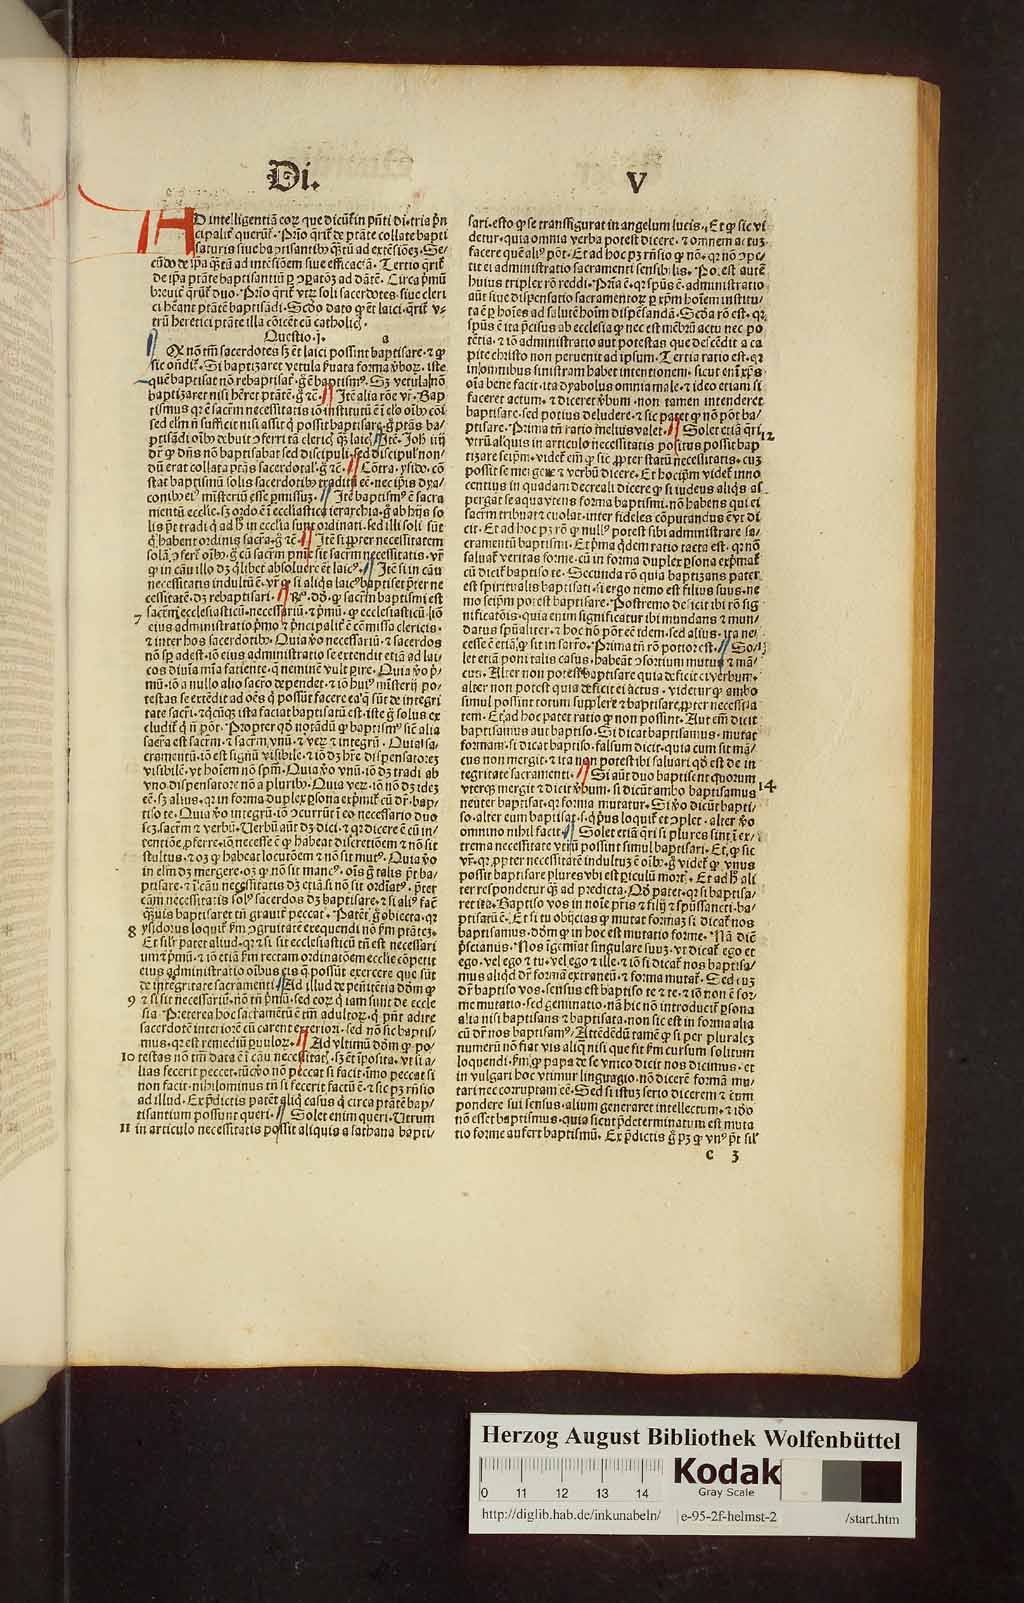 Di. V
AD intelligentiā eoꝝ que dicūt̃ in pñti di. tria pñ
cipalit̃ querūt̃. Prīo q̄rit̃ de ptāte collate bapti
saturis siue baptisantibꝰ q̄ꝫtū ad extēsiōeꝫ. Se/
cūdo de ip̄a q̄ꝫtū ad intēsiōem siue efficaciā. Tertio q̄rit̃
de ip̄a ptāte baptisantiū ad dātē. Circa p̄mū
breuit̃ q̄rūt̃ duo. Prīo q̄rit̃ vtꝝ soli sacerdotes, siue cleri
ci hēant ptātē baptisādi. Scḋo dato ꝙ et̄ laici. q̄rit̃ v/
trū heretici ptāte illa cōicēt cū catholicꝭ.
Questio .j. a
Qꝫ nō tm̄ sacerdotes sꝫ et̄ laici possint baptisare. ⁊ ꝙ
sic ondit̃. Si baptizaret vetula seruata forma v̄boꝝ. iste
quē baptisat nō rebaptisat̃. g̊ ē baptismꝰ. Sꝫ vetula nō
baptizaret nisi hēret ptātē. g̊ ⁊c̄. Itē alia rōe vr̃. Bap
tismus qꝛ ē sacr̄m necessitatis iō institutū ē ī elo oībꝰ cōi
sed elm̄ nō sufficit nisi assit qͥ possit baptisare. g̊ ptās ba/
ptisādi oībꝰ debuit ꝯferri tā clericꝭ qꝫ laicꝭ. Itē. Joh̄ iiij
dr̃ ꝙ dn̄s nō baptisabat sed discipuli. sed discipul' non/
dū erat collata ptās sacerdotal'. g̊ ⁊c̄. Cōtra. ysido. cō
stat baptismū solis sacerdotibꝰ traditū eē. nec ip̄is dya/
conibꝰ eiꝰ misteriū esse pmissuꝫ. Itē baptismꝰ ē sacra
mentū ecclīe. sꝫ ordo ē ī ecclīastica ierarchia. g̊ ab hijs so
lis pt̄ tradi qͥ ad hͦ in ecclīa sunt ordinati. sed illi soli sūt
qͥ habent ordinis sacra. g̊ ⁊c̄. Itē si ꝓpter necessitatem
solā ꝯfert̃ oībꝰ. g̊ cū sacr̄m pnīe sit sacr̄m necessitatis. vr̃
ꝙ in cāu illo dꝫ qͥlibet absoluere et̄ laicꝰ. Itē si in cāu
necessitatis indultū ē. vr̃ ꝙ si aliqͥs laicꝰ baptiset pter ne
cessitatē. dꝫ rebaptisari. Rͦ. dḋ. ꝙ sacr̄m baptismi est
7 sacr̄m ecclesiasticū. necessariū. ⁊ pmū. ꝙ ecclesiasticū. iō
eius administratio pmo ⁊ pncipalit̃ ē cōmissa clericis.
⁊ inter hos sacerdotibꝰ. Quia v̊o necessariū. ⁊ sacerdos
nō sp adest. iō eius administratio se extendit etiā ad lai/
cos diuīa mīa faciente. q neminē vult pire. Quia v̊o p/
mū. iō a nullo alio sacro dependet. ⁊ iō huiꝰ misterij po/
testas se extēdit ad oēs qͥ possūt facere ea q̄ sūt de integri
tate sacr̄i. ⁊ qͥcūqꝫ ista faciat baptisatū est. iste g̊ solus ex
cludit̃ qͥ nō pōt. Propter qḋ notādū ꝙ baptismꝰ sm̄ alia
sacra est sacr̄m. ⁊ sacr̄m vnū. ⁊ veꝝ ⁊ integrū. Quia sa/
cramentū. iō est signū visibile. ⁊ iō dꝫ hr̄e dispensatoreꝫ
visibilē. vt hoīem nō spm̄. Quia v̊o vnū. iō dꝫ tradi ab
vno dispensatore nō a pluribꝰ. Quia veꝝ. iō nō dꝫ ideꝫ
eē. sꝫ alius. qꝛ in forma duplex psona exprimit̃ cū dr̃. bap/
tiso te. Quia v̊o integrū. iō ꝯcurrūt ī eo necessario duo
scꝫ. sacr̄m ⁊ verbū. Verbū aūt dꝫ dici. ⁊ qꝛ dicere ē cū in/
tentiōe ꝓferre. iō necesse ē ꝙ habeat discretiōem ⁊ nō sit
stultus. ⁊ oꝫ ꝙ habeat locutōem ⁊ nō sit mutꝰ. Quia v̊o
in elm̄ dꝫ mergere. oꝫ ꝙ nō sit mancꝰ. oīs g̊ talis pt̄ ba/
ptisare. ⁊ ī cāu necessitatis dꝫ etiā si nō sit ordīatꝰ. pter
cām necessitatis solꝰ sacerdos dꝫ baptisare. ⁊ si aliꝰ faē
qͣuis baptisaret tn̄ grauit̃ peccat. Patēt g̊ obiecta. qꝛ
8 ysidorus loquit̃ sm̄ ꝯgruitatē exequendi nō sm̄ ptāteꝫ.
Et sil'r patet aliud. qꝛ ⁊ si sit ecclesiasticū tn̄ est necessari
um ⁊ pmū. ⁊ iō etiā sm̄ rectam ordinatōem ecclīe cōpetit
eius administratio oībus eis q̄ possūt exercere que sūt
de integritate sacramenti. Ad illud de penitētia dōm ꝙ
9 ⁊ si sit necessariū. nō tn̄ pmū. sed eoꝝ qͥ iam sunt de eccle
sia. Preterea hoc sacramētū ē tm̄ adultoꝝ. qͥ pn̄t adire
sacerdotē interiorē cū carent exteriori. sed nō sic baptis/
mus. qꝛ est remediū puuloꝝ. Ad vltimū dōm ꝙ po/
10 testas nō tm̄ data ē ī cāu necessitatꝭ. sꝫ et̄ īposita. vt si a/
lias fecerit peccet. tūc v̊o nō peccat si facit. imo peccat si
non facit. nihilominus tn̄ si fecerit factū ē. ⁊ sic pꝫ rn̄sio
ad illud. Ex pdictis patēt aliqͥ casus qͥ circa ptātē bap/
tisantium possunt queri. Solet enim queri. Utrum
11 in articulo necessitatis possit aliquis a sathana bapti/
sari. esto ꝙ se transfigurat in angelum lucis. Et ꝙ sic vi
detur. quia omnia verba potest dicere. ⁊ omnem actuꝫ
facere quē aliꝰ pōt. Et ad hoc pꝫ rn̄sio ꝙ nō. qꝛ nō ꝯpe/
tit ei administratio sacramenti sensibilis. Po. est autē
huius triplex rō reddi. Prīa ē. qꝛ spūs ē. administratio
aūt siue dispensatio sacramentoꝝ p xpm̄ hoīem institu/
ta ē p hoīes ad salutē hoīm dispēsandā. Scḋa rō est. qꝛ
spūs ē ita pcisus ab ecclesia ꝙ nec est mēbrū actu nec po
tētia. ⁊ iō administratio aut potestas que descēdit a ca
pite christo non peruenit ad ipsum. Tertia ratio est. qꝛ
in omnibus sinistram habet intentionem. sicut eni xp̄s
oīa bene facit. ita dyabolus omnia male. ⁊ ideo etiam si
faceret actum. ⁊ diceret v̄bum. non tamen intenderet
baptisare. sed potius deludere. ⁊ sic patet ꝙ nō pōt ba/
ptisare. Prima tn̄ ratio melius valet. Solet etiā q̄ri
12 vtrū aliquis in articulo necessitatis positus possit bap
tizare seipm̄. videt̃ em̄ ꝙ sic ꝓpter statū necessitatis. cuꝫ
possit se mergere ⁊ verbū dicere. Et hoc ipm̄ videt̃ inno
centius in quadam decretali dicere ꝙ si iudeus aliqͥs as
pergat se aqua vtens forma baptismi. nō habens qui ei
sacr̄m tribuat ⁊ euolat. inter fideles cōputandus ē vt di
cit. Et ad hoc pꝫ rō ꝙ nullꝰ potest sibi administrare sa/
cramentū baptismi. Et pma qͥdem ratio tacta est. qꝛ nō
saluat̃ veritas forme. cū in forma duplex psona exprimat̃
cū dicit̃ baptiso te. Secunda rō quia baptizans pater
est spiritualis baptisati. si ergo nemo est filius suus. ne
mo seipm̄ potest baptisare. Postremo deficit ibi rō sig
nificatōis. quia enim significatur ibi mundans ⁊ mun/
datus spūaliter. ⁊ hoc nō pōt eē idem. sed alius. ita ne/
cesse ē etiā ꝙ sit in sacro. Prima tn̄ rō potior est. So/
13 let etiā poni talis casus. habeāt ꝯsortium mutus ⁊ mā/
cus. Alter non potest baptisare quia deficit ei verbum.
alter non potest quia deficit ei actus. videtur ꝙ ambo
simul possint totum supplere ⁊ baptisare. ꝓpter necessita
tem. Et ad hoc patet ratio ꝙ non possint. Aut em̄ dicit
baptisamus aut baptiso. Si dicat baptisamus. mutat
formam. si dicat baptiso. falsum dicit. quia cum sit mā/
cus non mergit. ⁊ ita non potest ibi saluari qḋ est de in
tegritate sacramenti. Si aūt duo baptisent quorum
14 vterqꝫ mergit ⁊ dicit v̄bum. si dicūt ambo baptisamus
neuter baptisat. qꝛ forma mutatur. Si v̊o dicūt bapti/
so. alter eum baptisat. s. qͥ prius loquit̃ et ꝯplet. alter v̊o
omnino nihil facit. Solet etiā q̄ri si plures sint ī ex/
trema necessitate vtrū possint simul baptisari. Et ꝙ sic
vr̃. qꝛ. ꝓpter necessitatē indultuꝫ ē oībꝰ. g̊ videt̃ ꝙ vnus
possit baptisare plures vbi est piculū mortꝭ. Et ad hͦ ali
ter respondetur qꝫ ad predicta. Qḋ patet. qꝛ si baptisa/
ret ita. Baptiso vos in noīe pris ⁊ filij ⁊ spūssancti. ba/
ptisatū ē. Et si tu obijcias ꝙ mutat formaꝫ si dicat̃ nos
baptisamus. dōm ꝙ in hoc est mutatio forme. Nā dicit̃
priscianus. Nos ī geminat singulare suuꝫ. vt dicat̃ ego et
ego. vel ego ⁊ tu. vel ego ⁊ ille. ⁊ iō si dicat̃ nos baptisa/
mus aliqͥd dr̃ formā extraneū. ⁊ forma mutat̃. Sed cuꝫ
dr̃ baptiso vos. sensus est baptiso te ⁊ te. ⁊ iō non ē for/
me mutatio. sed geminatio. nā hic nō introducit̃ psona
alia nisi baptisans ⁊ baptisata. non sic est in forma alia
cū dr̃ nos baptisamꝰ. Attēdēdū tamē ꝙ si per pluraleꝫ
numerū nō fiat vis aliq̄ nisi que fit sm̄ cursum solitum
loquendi. sm̄ ꝙ papa de se vnico dicit nos dicimus. et
in vulgari hoc vtimur linguagio. nō dicerē formā mu/
tari nec corruptam eē. Sed si istuꝫ serio dicerem ⁊ cum
pondere sui sensus. alium generaret intellectum. ⁊ iōo
nō esset baptismus. quia sicut pdeterminatum est muta
tio forme aufert baptismū. Ex pdictis g̊ pꝫ ꝙ vnꝰ pt̄ sil'
c 3
Herzog August Bibliothek Wolfenbüttel
Kodak
Gray Scale
0 11 12 13 14
http://diglib.hab.de/inkunabeln/ e-95-2f-helmst-2 /start.htm